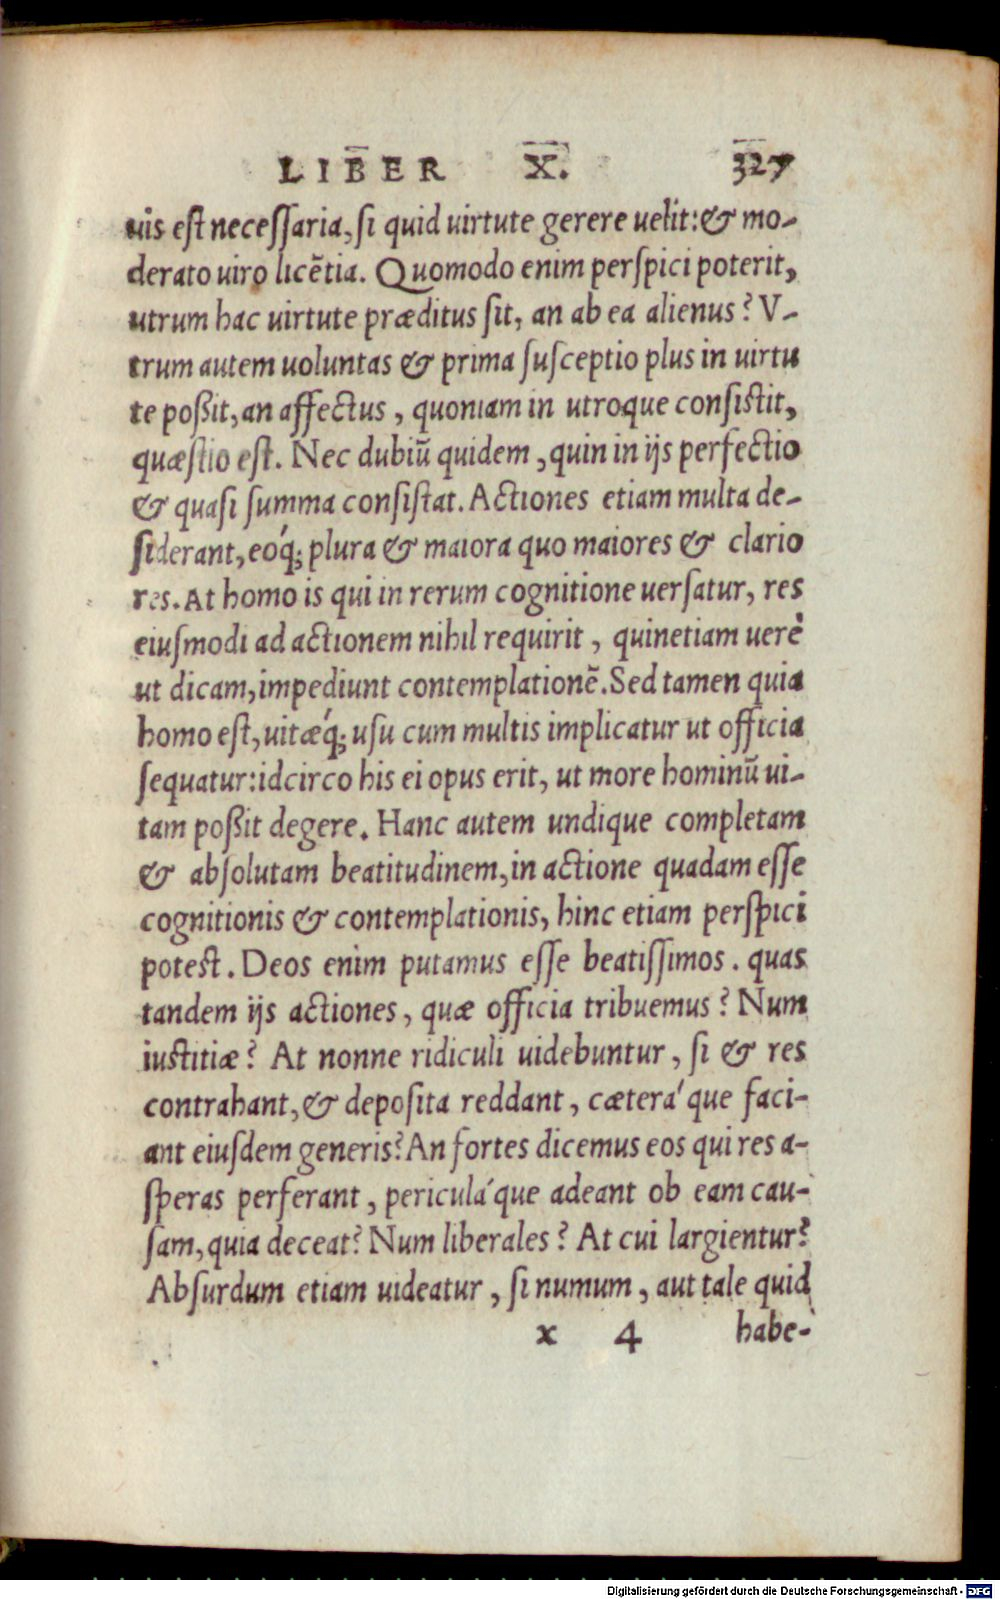 LIBER X. 327
uis est necessaria, si quid uirtute gerere uelit: & mo-
derato uiro licētia. Quomodo enim perspici poterit,
utrum hac uirtute præditus sit, an ab ea alienus? V-
trum autem uoluntas & prima susceptio plus in uirtu
te poßit, an affectus, quoniam in utroque consistit,
quæstio est. Nec dubiū quidem, quin in ijs perfectio
& quasi summa consistat. Actiones etiam multa de-
siderant, eoq́; plura & maiora quo maiores & clario
res. At homo is qui in rerum cognitione uersatur, res
eiusmodi ad actionem nihil requirit, quinetiam uerè
ut dicam, impediunt contemplationē. Sed tamen quia
homo est, uitæq́; usu cum multis implicatur ut officia
sequatur: idcirco his ei opus erit, ut more hominū ui-
tam poßit degere. Hanc autem undique completam
& absolutam beatitudinem, in actione quadam esse
cognitionis & contemplationis, hinc etiam perspici
potest. Deos enim putamus esse beatissimos. quas
tandem ijs actiones, quæ officia tribuemus? Num
iustitiæ? At nonne ridiculi uidebuntur, si & res
contrahant, & deposita reddant, cæterá que faci-
ant eiusdem generis? An fortes dicemus eos qui res a-
speras perferant, periculá que adeant ob eam cau-
sam, quia deceat? Num liberales? At cui largientur?
Absurdum etiam uideatur, si numum, aut tale quid
x 4 habe-
Digitalisierung gefördert durch die Deutsche Forschungsgemeinschaft - DFG